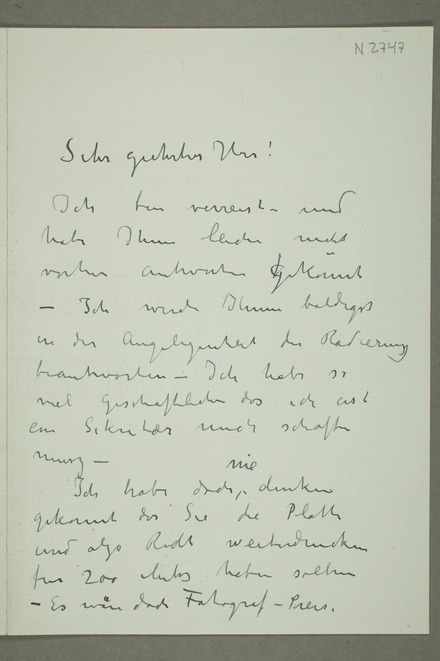 N 2747
Sehr geehrter Herr!
Ich bin verreist – und
habe Ihnen leider nicht
vorher antworten gekönnt
– Ich werde Ihnen baldigst
in der Angelegenheit der Radierung
beantworten – Ich habe so
viel Geschäftliches das ich erst
ein Sekretär mich schaffen
muss –
Ich habe doch nie denken
gekonnt das Sie die Platte
und also Recht weiterdrucken
für 200 Mks haben sollen
– Es wäre doch Fotograf – Preis.